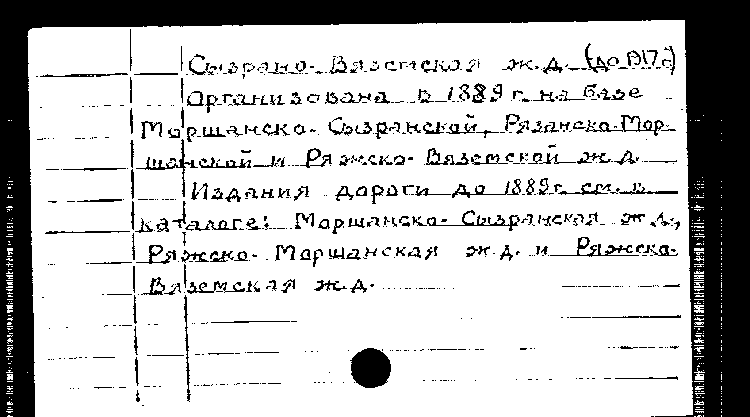 Сызрано-Вяземская ж.д. (до 1917г)
Организована в 1889 г. на базе
Моршанско-Сызранской, Рязанско-Мор-
шанской и Ряжско-Вяземской ж.д.
Издания дороги до 1889г. см. в
каталоге: Моршанско-Сызранская ж.д.,
Ряжско-Моршанская ж.д. и Ряжско-
Вяземская ж.д.